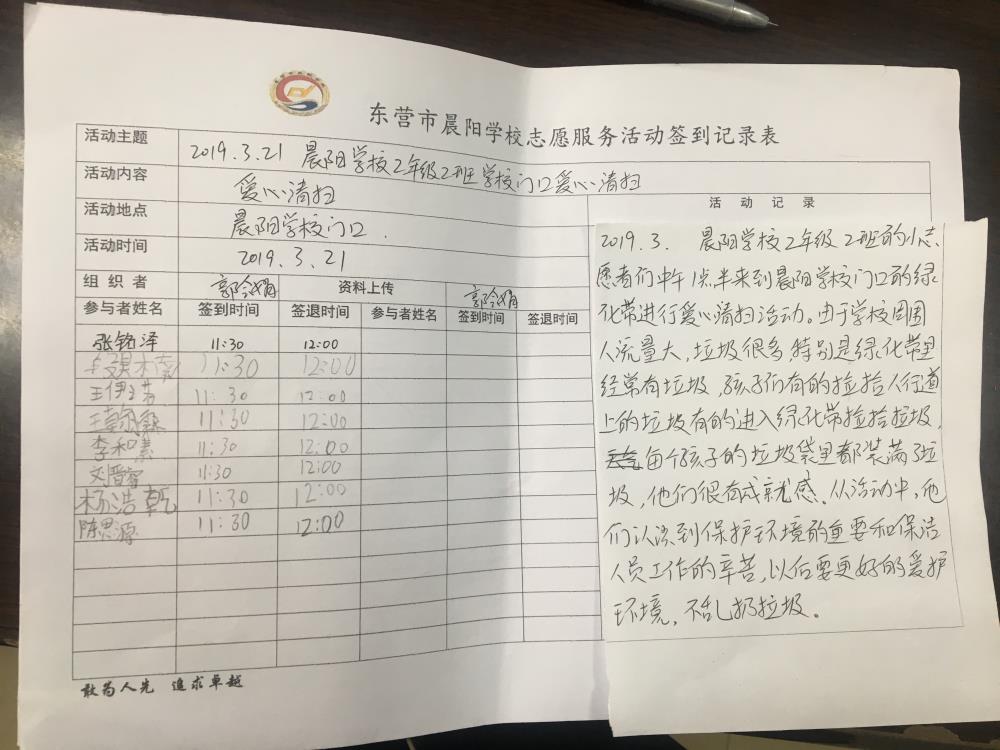 东营市晨阳学校志愿服务活动签到记录表
活动主题 2019.3.21 晨阳学校2年级2班学校门口爱心清扫
活动内容 爱心清扫
活动地点 晨阳学校门口.
活动时间 2019.3.21
组织者 资料上传
参与者姓名 签到时间 签退时间 参与者姓名 签到时间 签退时间
张铭泽 11:30 12:00
11:30 12:00
11:30 12:00
11:30 12:00
李和 11:30 12:00
11:30 12:00
杨浩乾 11:30 12:00
陈思源 11:30 12:00
敢为人先 追求卓越
活动记录
2019.3. 晨阳学校2年级2班的小志
愿者们中午1点半来到晨阳学校门口的绿
化带进行爱心清扫活动。由于学校周围
人流量大,垃圾很多,特别是绿化带里
经常有垃圾,孩子们有的捡拾人行道
上的垃圾有的进入绿化带捡拾垃圾,
每个孩子的垃圾袋里都装满了垃
圾,他们很有成就感.从活动中,他
们认识到保护环境的重要和保洁
人员工作的辛苦,以后要更好的爱护
环境,不乱扔垃圾。